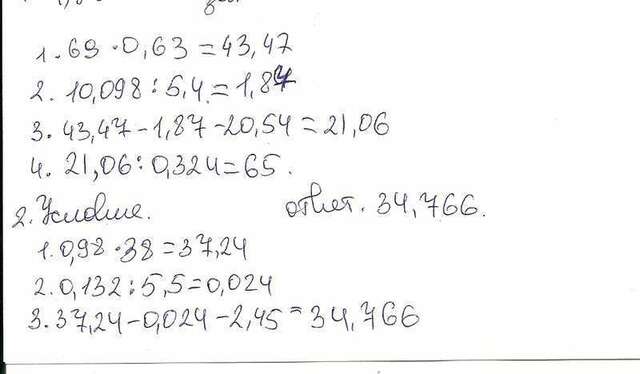 1. 69 · 0,63 = 43,47
2. 10,098 : 5,4 = 1,87
3. 43,47 - 1,87 - 20,54 = 21,06
4. 21,06 : 0,324 = 65.
2. Условие. ответ. 34,766.
1. 0,98 · 38 = 37,24
2. 0,132 : 5,5 = 0,024
3. 37,24 - 0,024 - 2,45 = 34,766